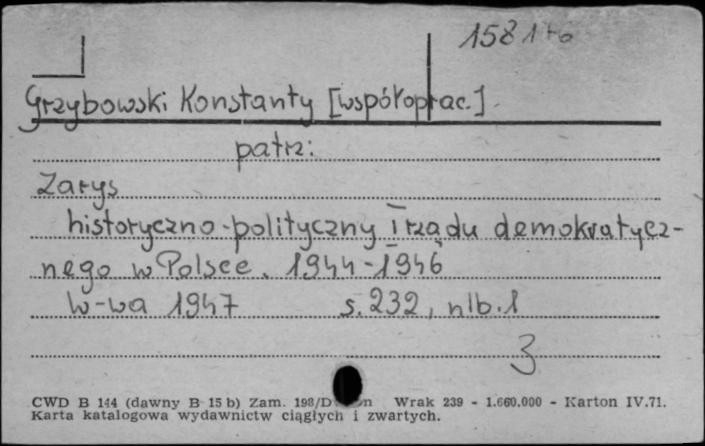 1581
Grzybowski Konstanty [współoprac.]
patrz:
Zarys
historyczno-polityczny I rządu demokratycz-
nego w Polsce. 1944-1946
W-wa 1947 s. 232, nlb. 1
3
CWD B 144 (dawny B 15 b) Zam. 198/D Wrak 239 - 1.660.000 - Karton IV.71.
Karta katalogowa wydawnictw ciągłych i zwartych.